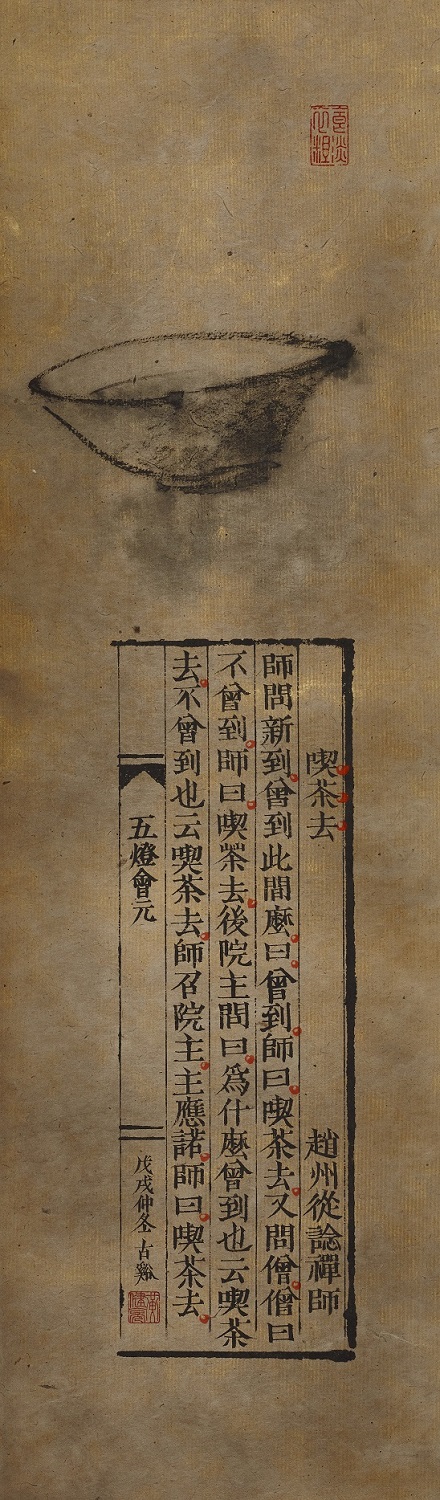 喫茶去
趙州從諗禪師
師問新到曾到此間麼曰曾到師曰喫茶去又問僧僧曰
不曾到師曰喫茶去後院主問曰爲什麼曾到也云喫茶
去不曾到也云喫茶去師召院主主應諾師曰喫茶去
五燈會元
戊戌仲冬古谿